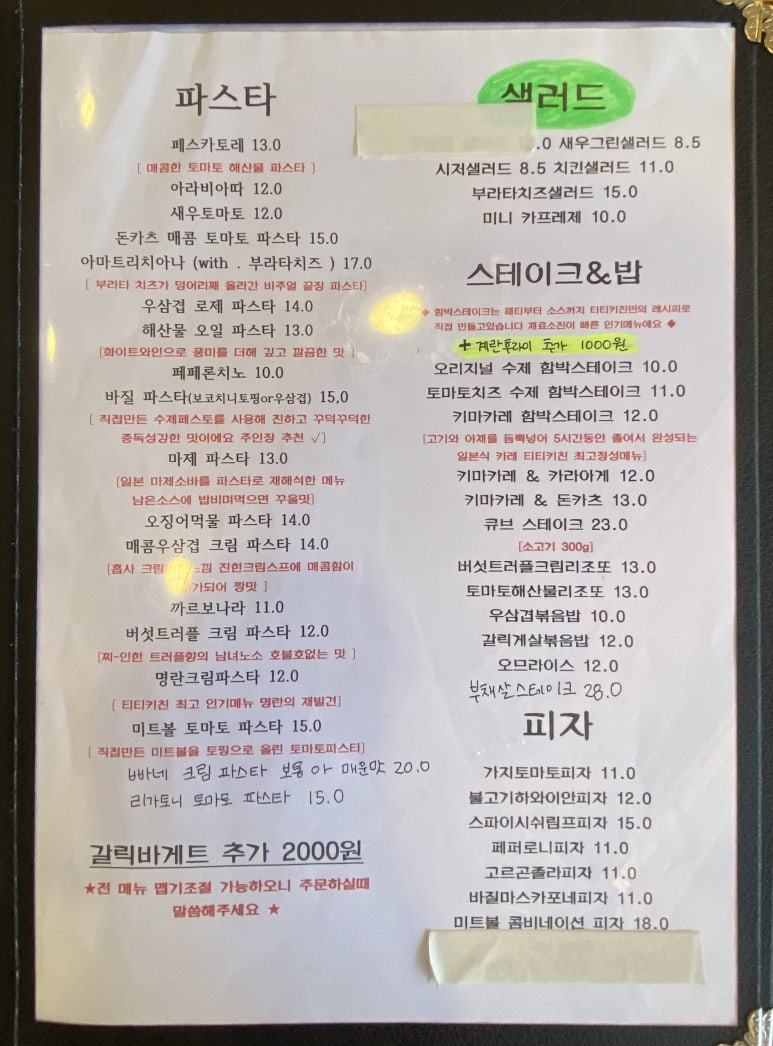 파스타
페스카토레 13.0
[ 매콤한 토마토 해산물 파스타 ]
아라비아따 12.0
새우토마토 12.0
돈카츠 매콤 토마토 파스타 15.0
아마트리치아나 (with . 부라타치즈 ) 17.0
[ 부라타 치즈가 덩어리째 올라간 비주얼 끝장 파스타]
우삼겹 로제 파스타 14.0
해산물 오일 파스타 13.0
[화이트와인으로 풍미를 더해 깊고 깔끔한 맛 ]
페페론치노 10.0
바질 파스타(보코치니토핑or우삼겹) 15,0
[ 직접만든 수제페스토를 사용해 진하고 꾸덕꾸덕한
중독성강한 맛이에요 주인장 추천 √]
마제 파스타 13.0
[일본 마제소바를 파스타로 재해석한 메뉴
남은소스에 밥비며먹으면 꾸울맛]
오징어먹물 파스타 14.0
매콤우삼겹 크림 파스타 14.0
[흡사 크림 느낌 진한크림스프에 매콤함이
가되어 짱맛 ]
까르보나라 11.0
버섯트러플 크림 파스타 12.0
[찌-인한 트러플향의 남녀노소 호불호없는 맛 ]
명란크림파스타 12.0
[ 티티키친 최고 인기메뉴 명란의 재발견]
미트볼 토마토 파스타 15.0
[ 직접만든 미트볼을 토핑으로 올린 토마토파스타]
빠네 크림 파스타 보통 or 매운맛 20.0
리가토니 토마토 파스타 15.0
갈릭바게트 추가 2000원
★전 메뉴 맵기조절 가능하오니 주문하실때
말씀해주세요 ★
샐러드
.0 새우그린샐러드 8.5
시저샐러드 8.5 치킨샐러드 11.0
부라타치즈샐러드 15.0
미니 카프레제 10.0
스테이크&밥
◆ 함박스테이크는 패티부터 소스까지 티티키친만의 레시피로
직접 만들고있습니다 재료소진이 빠른 인기메뉴에요 ◆
+ 계란후라이 추가 1000원
오리지널 수제 함박스테이크 10.0
토마토치즈 수제 함박스테이크 11.0
키마카레 함박스테이크 12.0
[고기와 야채를 듬뿍넣어 5시간동안 졸여서 완성되는
일본식 카레 티티키친 최고정성메뉴]
키마카레 & 카라아게 12.0
키마카레 & 돈카츠 13.0
큐브 스테이크 23.0
[소고기 300g]
버섯트러플크림리조또 13.0
토마토해산물리조또 13.0
우삼겹볶음밥 10.0
갈릭게살볶음밥 12.0
오므라이스 12.0
부채살스테이크 28.0
피자
가지토마토피자 11.0
불고기하와이안피자 12.0
스파이시쉬림프피자 15.0
페퍼로니피자 11.0
고르곤졸라피자 11.0
바질마스카포네피자 11.0
미트볼 콤비네이션 피자 18.0